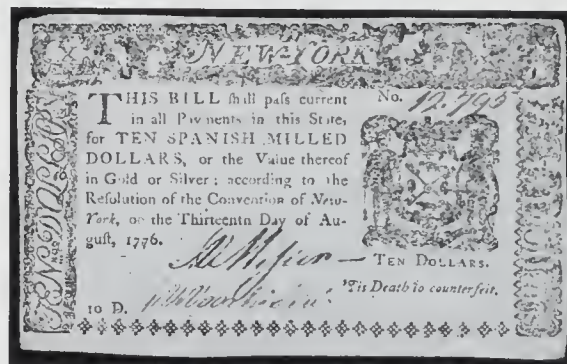 NEW-YORK
THIS BILL ſhall paſs current
in all Payments in this State,
for TEN SPANISH MILLED
DOLLARS, or the Value thereof
in Gold or Silver; according to the
Reſolution of the Convention of New-
York, on the Thirteenth Day of Au-
guſt, 1776.
No. 12,795
TEN DOLLARS.
'Tis Death to counterfeit.
10 D.